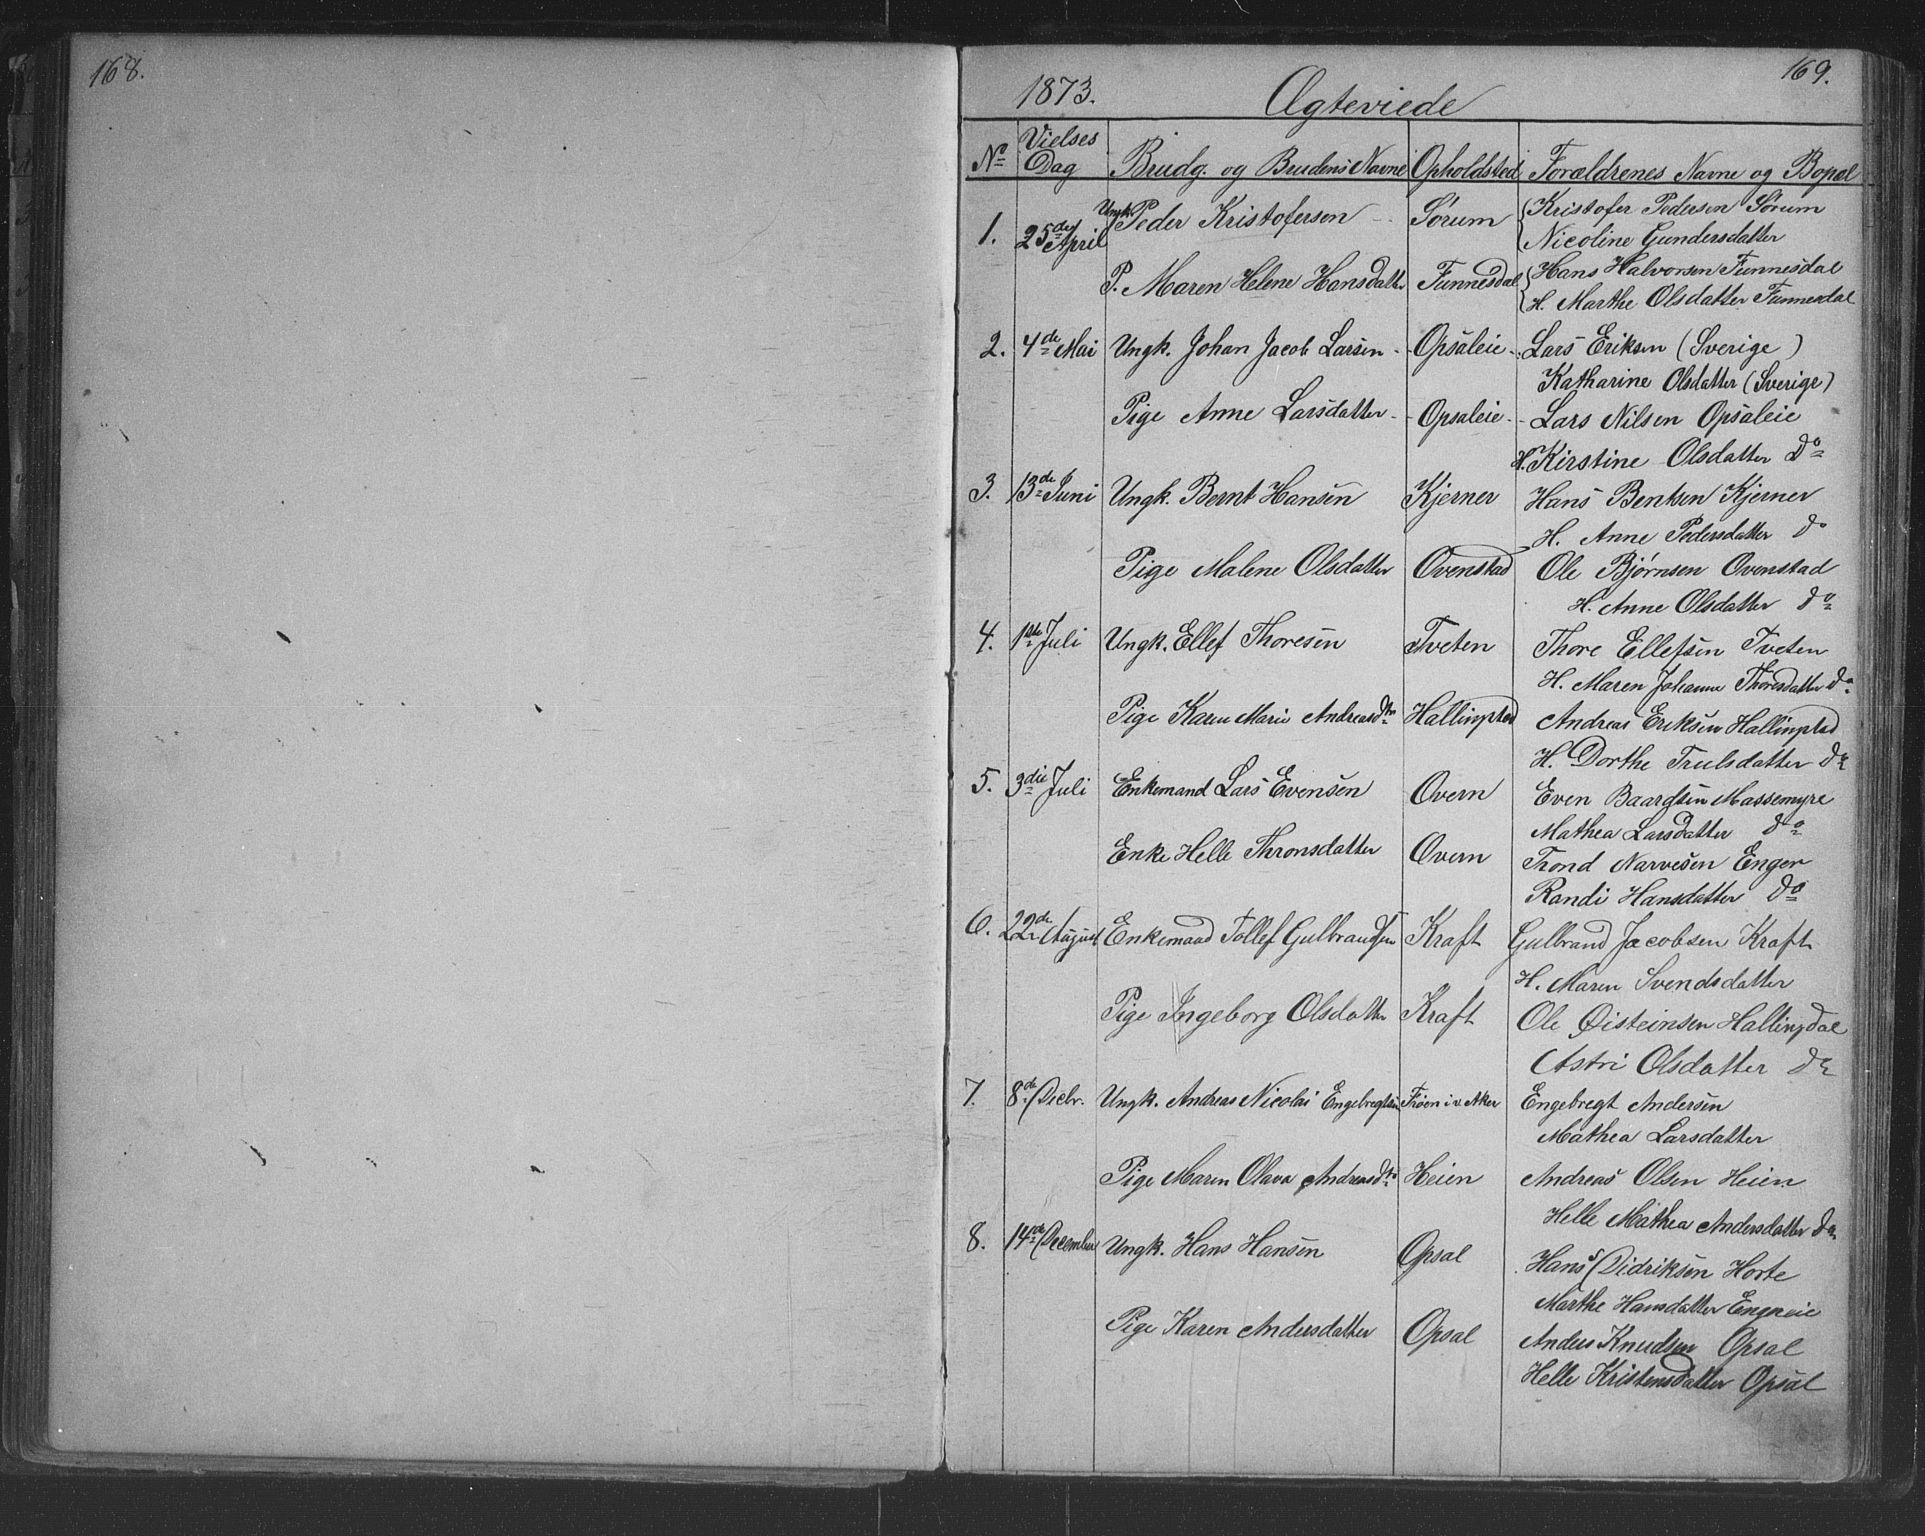 168.
169.
1873. Ægteviede
No Vielses Dag Brudg. og Brudens Navne Opholdsted Forældrenes Navne og Bopæl
1. 25de April Ungk. Peder Kristofersen Sørum Kristofer Pedersen Sørum
Nicoline Gundersdatter
P. Maren Helene Hansdatter Funnesdal Hans Halvorsen Funnesdal
H. Marthe Olsdatter Funnesdal
2. 4de Mai Ungk. Johan Jacob Larsen Opsaleie Lars Eriksen (Sverige)
Katharine Olsdatter (Sverige)
Pige Anne Larsdatter Opsaleie Lars Nilsen Opsaleie
H. Kirstine Olsdatter Do
3. 13de Juni Ungk. Bernt Hansen Kjerner Hans Bentsen Kjerner
H. Anne Pedersdatter do
Pige Malene Olsdatter Ovenstad Ole Bjørnsen Ovenstad
H. Anne Olsdatter do
4. 1ste Juli Ungk. Ellef Thoresen Tveten Thore Ellefsen Tveten
H. Maren Johanne Thoresdatter do
Pige Karen Marie Andreasdtr Hallingstad Andreas Eriksen Hallingstad
H. Dorthe Trulsdatter do
5. 3die Juli Enkemand Lars Evensen Overn Even Baardsen Massemyre
Mathea Larsdatter do
Enke Helle Thronsdatter Overn Trond Narvesen Enger
Randi Hansdatter do
6. 22de August Enkemand Tollef Gulbrandsen Kraft Gulbrand Jacobsen Kraft
H. Maren Svendsdatter
Pige Ingeborg Olsdatter Kraft Ole Øisteinsen Hallingdal
Astri Olsdatter do
7. 8de Decbr. Ungk. Andreas Nicolai Engebregtsen Frøen i v. Aker Engebregt Andersen
Mathea Larsdatter
Pige Maren Olava Andreasdtr Heien Andreas Olsen Heien
Helle Mathea Andersdatter do
8. 14de December Ungk. Hans Hansen Opsal Hans Didriksen Horte
Marthe Hansdatter Engneie
Pige Karen Andersdatter Opsal Anders Knudsen Opsal
Helle Kristensdatter Opsal